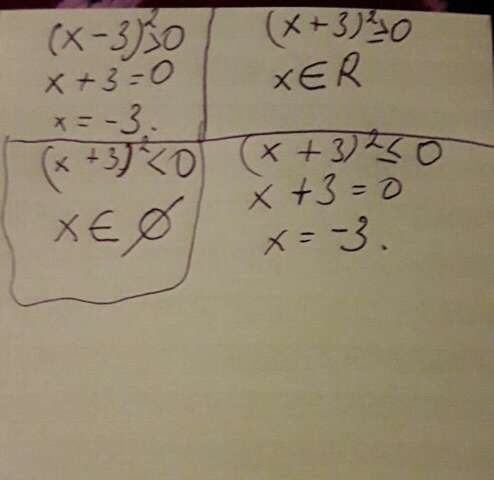 (x-3)²>0
x+3=0
x=-3.
(x+3)²≥0
x∈R
(x+3)²<0
x∈∅
(x+3)²≤0
x+3=0
x=-3.